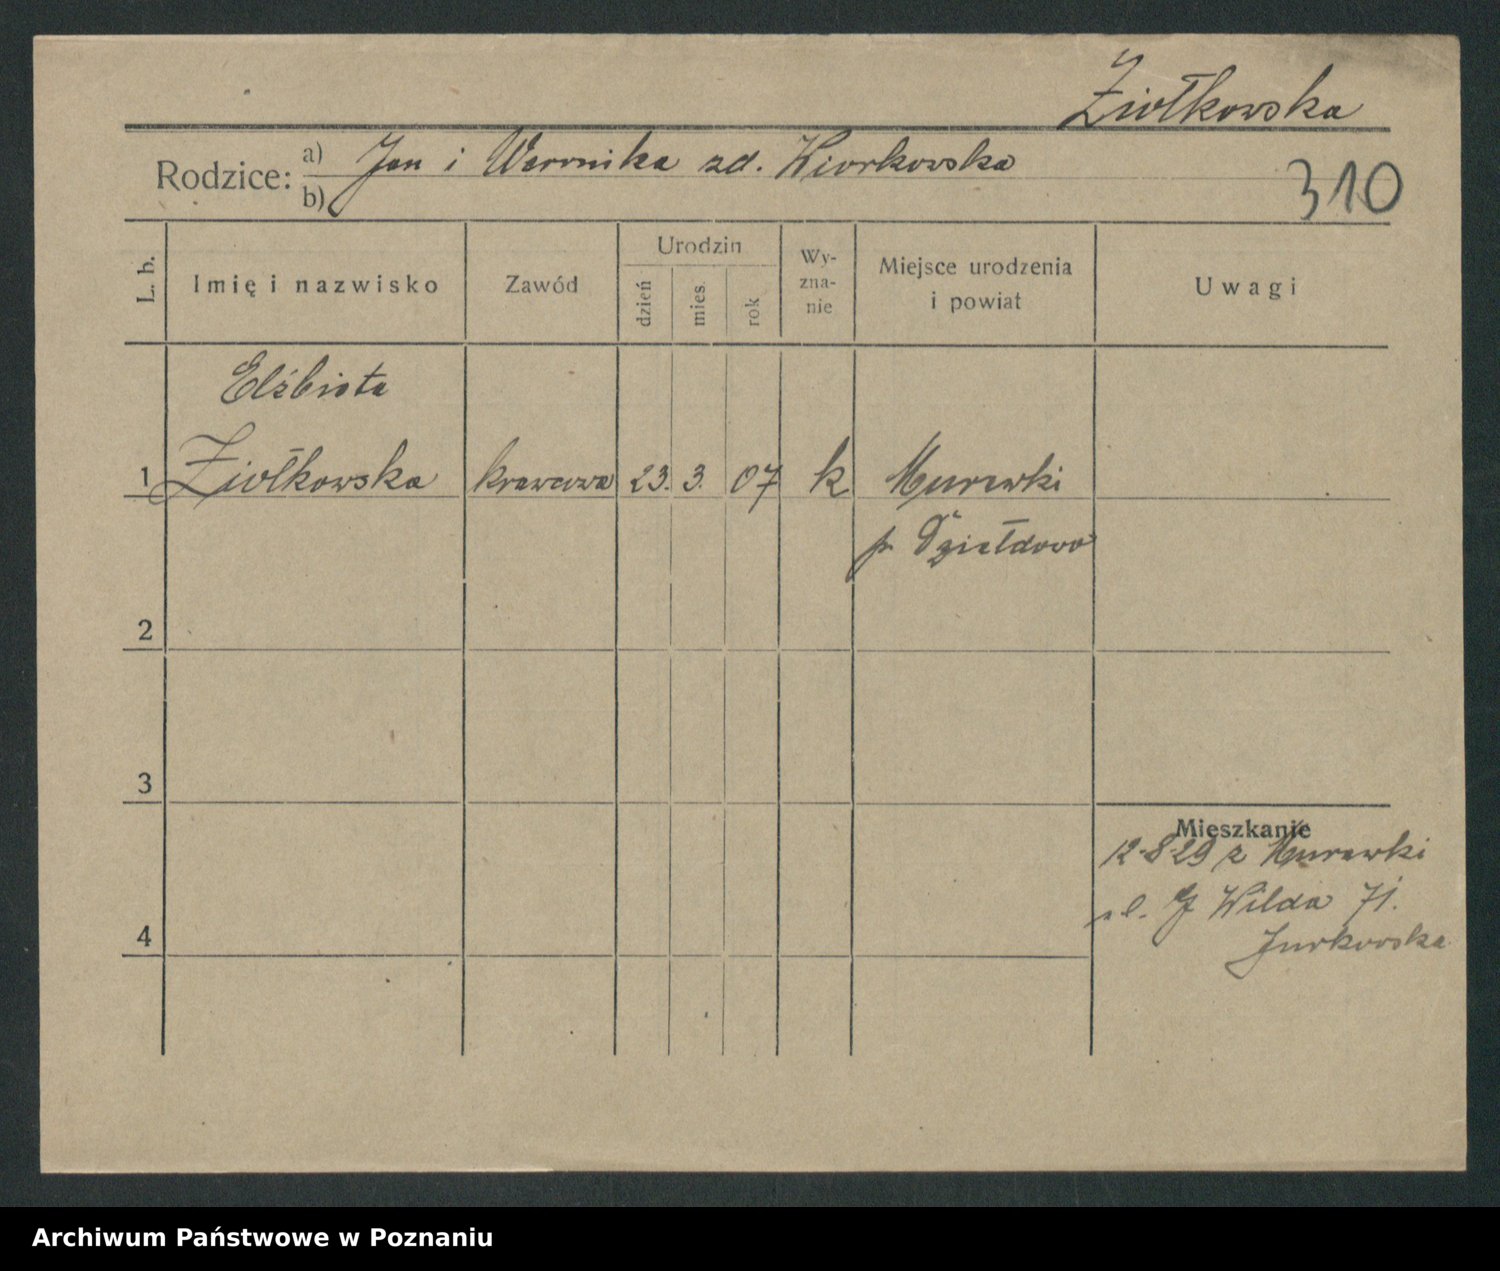 Ziółkowska
Rodzice: a) Jan i Weronika zd. Kiorkowska
b)
310
L. b.
Imię i nazwisko
Zawód
Urodzin
dzień
mies.
rok
Wy-
zna-
nie
Miejsce urodzenia
i powiat
Uwagi
Elżbieta
1 Ziółkowska krawcowa 23. 3. 07 k Murawki
p. Działdowo
2
3
Mieszkanie
12-8-29 z Murawki
G Wilda 71.
Jurkowska
4
Archiwum Państwowe w Poznaniu